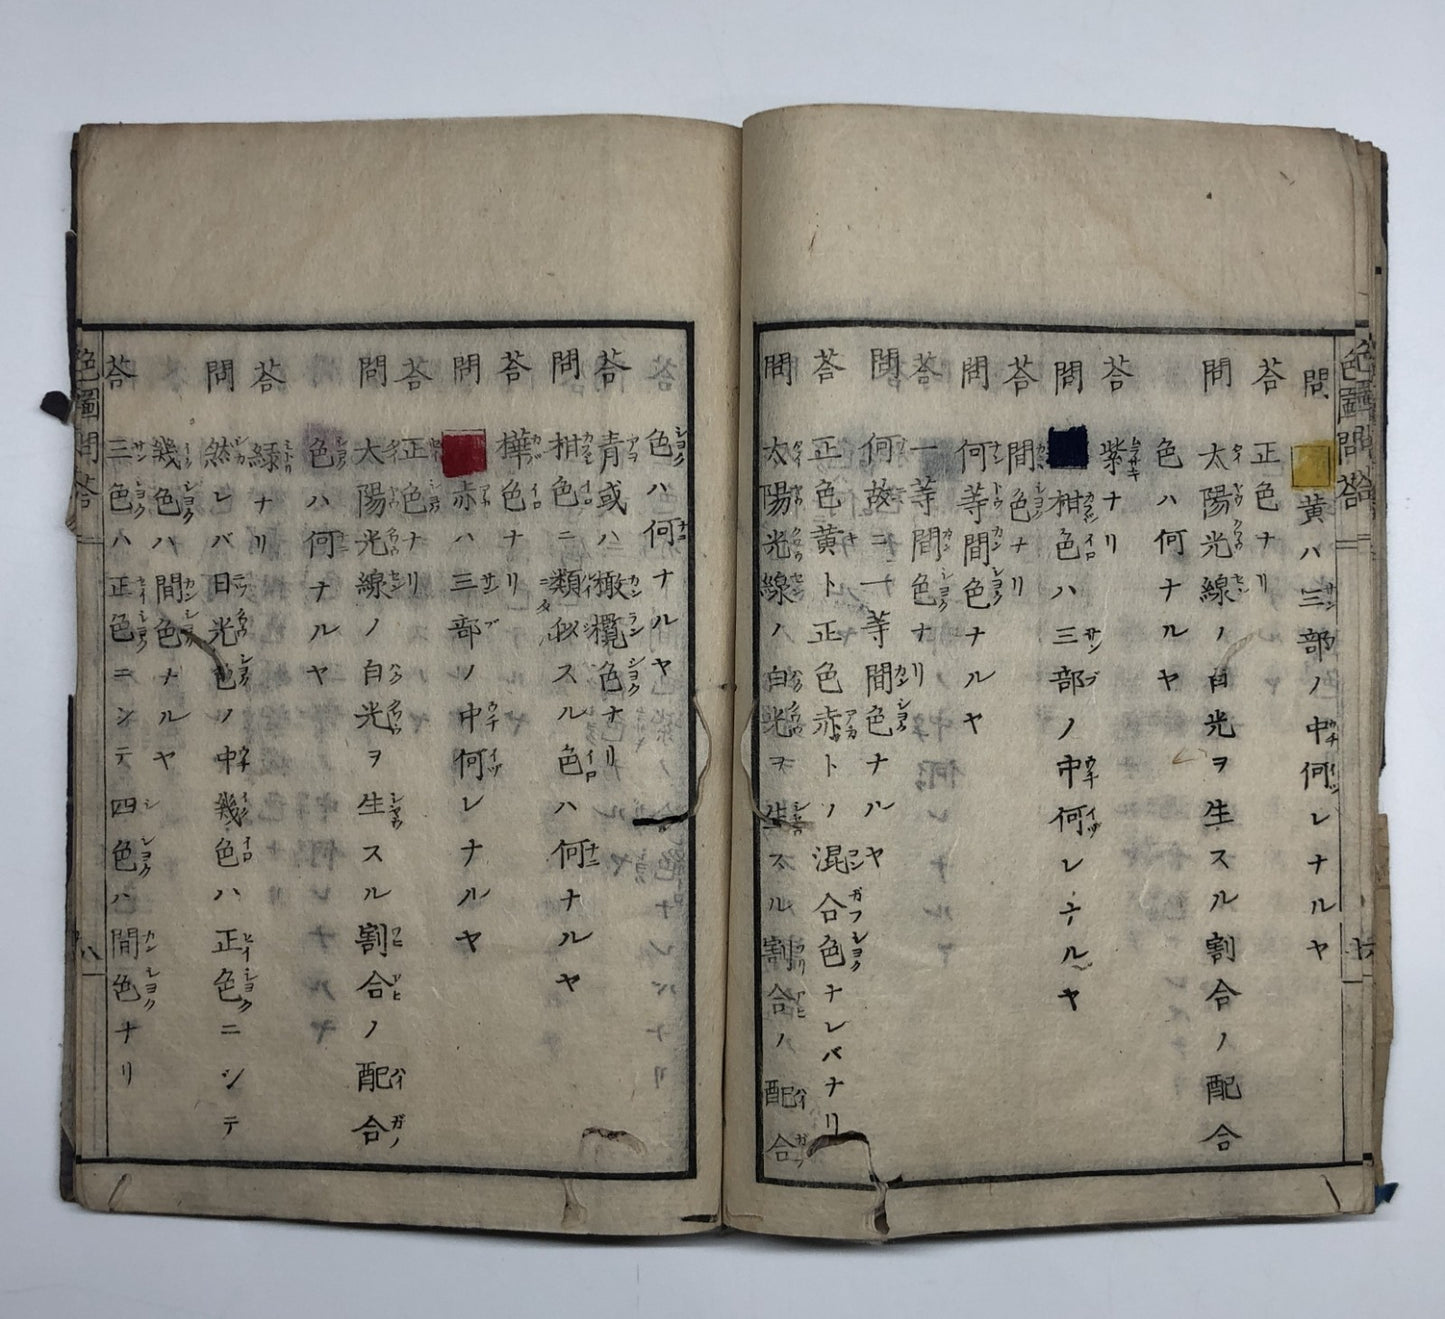 色圖問答
問 黄ハ三部ノ中何レナルヤ
答 正色ナリ
問 太陽光線ノ白光ヲ生スル割合ノ配合
色ハ何ナルヤ
答 紫ナリ
問 柑色ハ三部ノ中何レナルヤ
答 間色ナリ
問 何等間色ナルヤ
答 一等間色ナリ
問 何故ニ一等間色ナルヤ
答 正色黄ト正色赤トノ混合色ナレバナリ
問 太陽光線ノ白光ヲ生スル割合ノ配合
色ハ何ナルヤ
答 青或ハ橄欖色ナリ
問 柑色ニ類似スル色ハ何ナルヤ
答 樺色ナリ
問 赤ハ三部ノ中何レナルヤ
答 正色ナリ
問 太陽光線ノ白光ヲ生スル割合ノ配合
色ハ何ナルヤ
答 緑ナリ
問 然レバ日光色ノ中幾色ハ正色ニシテ
幾色ハ間色ナルヤ
答 三色ハ正色ニシテ四色ハ間色ナリ
色圖問答
八